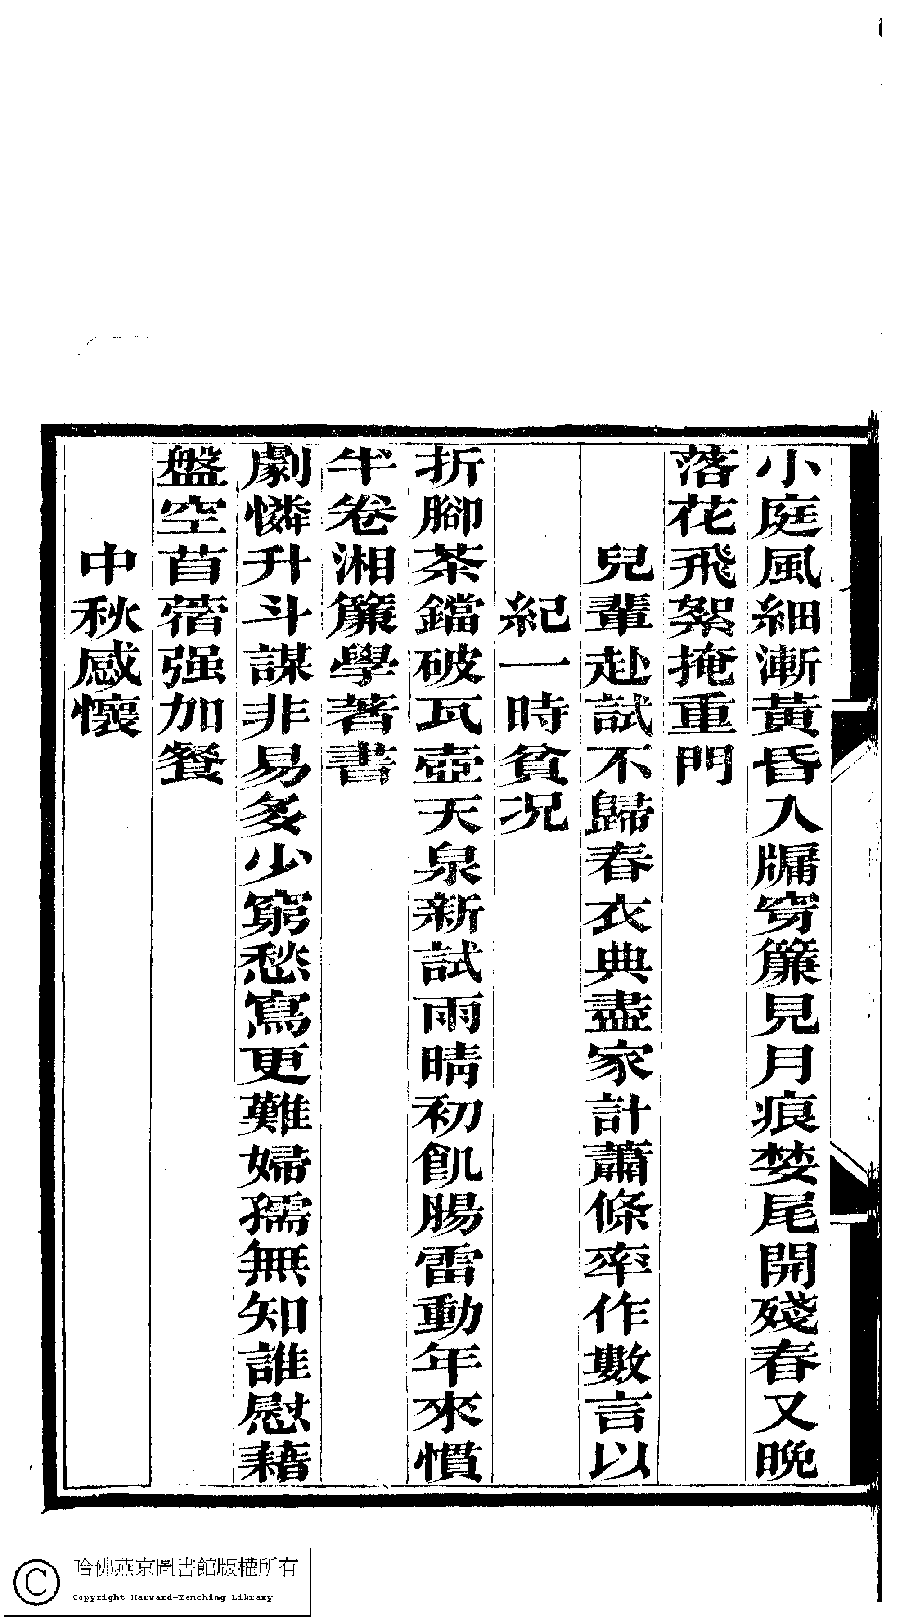 小庭風細漸黃昏入牖穿簾見月痕婪尾開殘春又晚
落花飛絮掩重門
兒輩赴試不歸春衣典盡家計蕭條率作數言以
紀一時貧况
折腳茶鐺破瓦壺天泉新試雨晴初飢腸雷動年來慣
半卷湘簾學著書
劇憐升斗謀非易多少窮愁寫更難婦孺無知誰慰藉
盤空苜蓿强加餐
中秋感懷
哈佛燕京圖書館版權所有
Copyright Harvard-Yenching Library